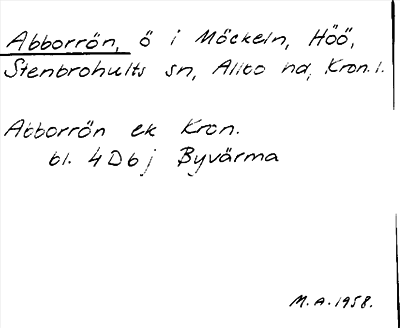 Abborrön, ö i Möckeln, Höö,
Stenbrohults sn, Allbo hd, Kron. l.
Abborrön ek Kron.
bl. 4D6j Byvärma
M.A. 1958.